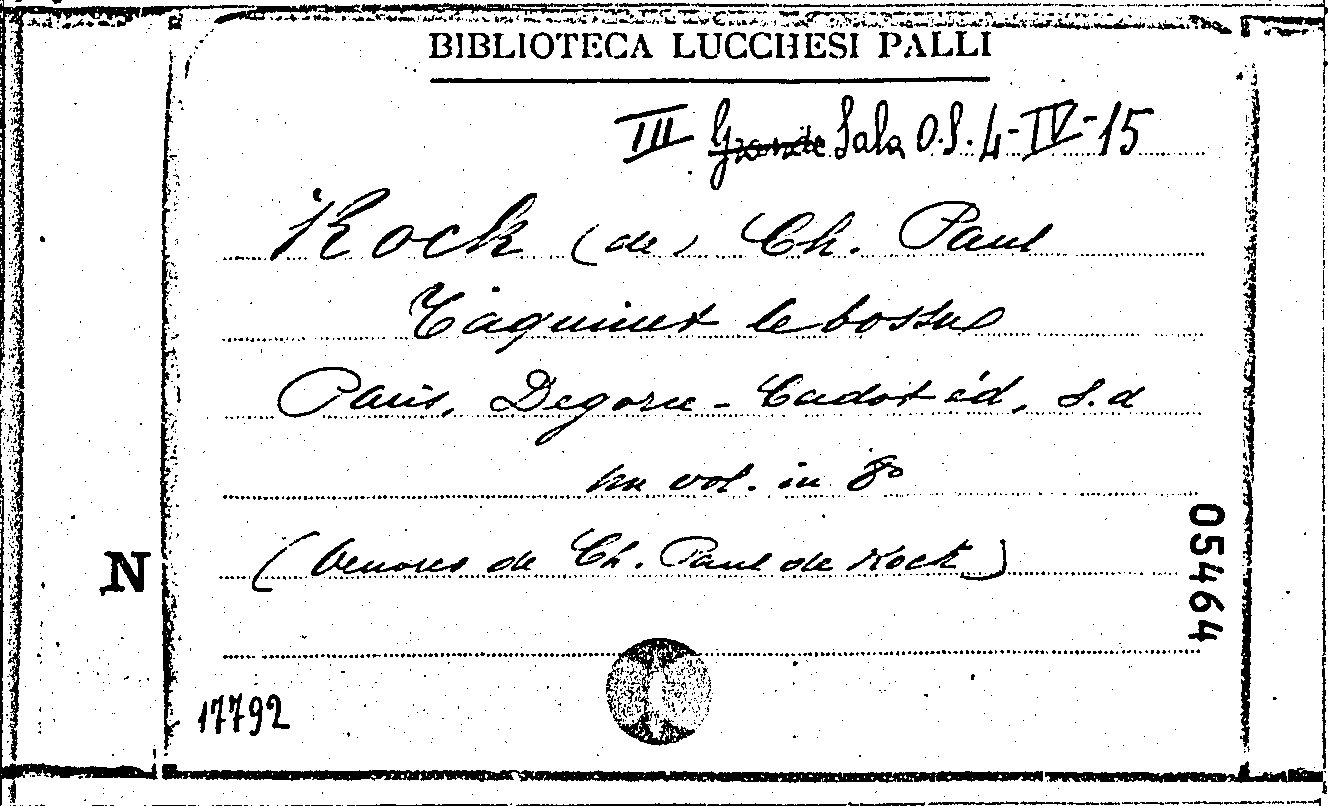 BIBLIOTECA LUCCHESI PALLI
III Grande Sala O.S. 4-IV-15
Kock (de) Ch. Paul
Taquinet le bossu
Paris, Degorce-Cadot éd, s.d
un vol. in 8º
(Oeuvres de Ch. Paul de Kock)
N
05464
17792